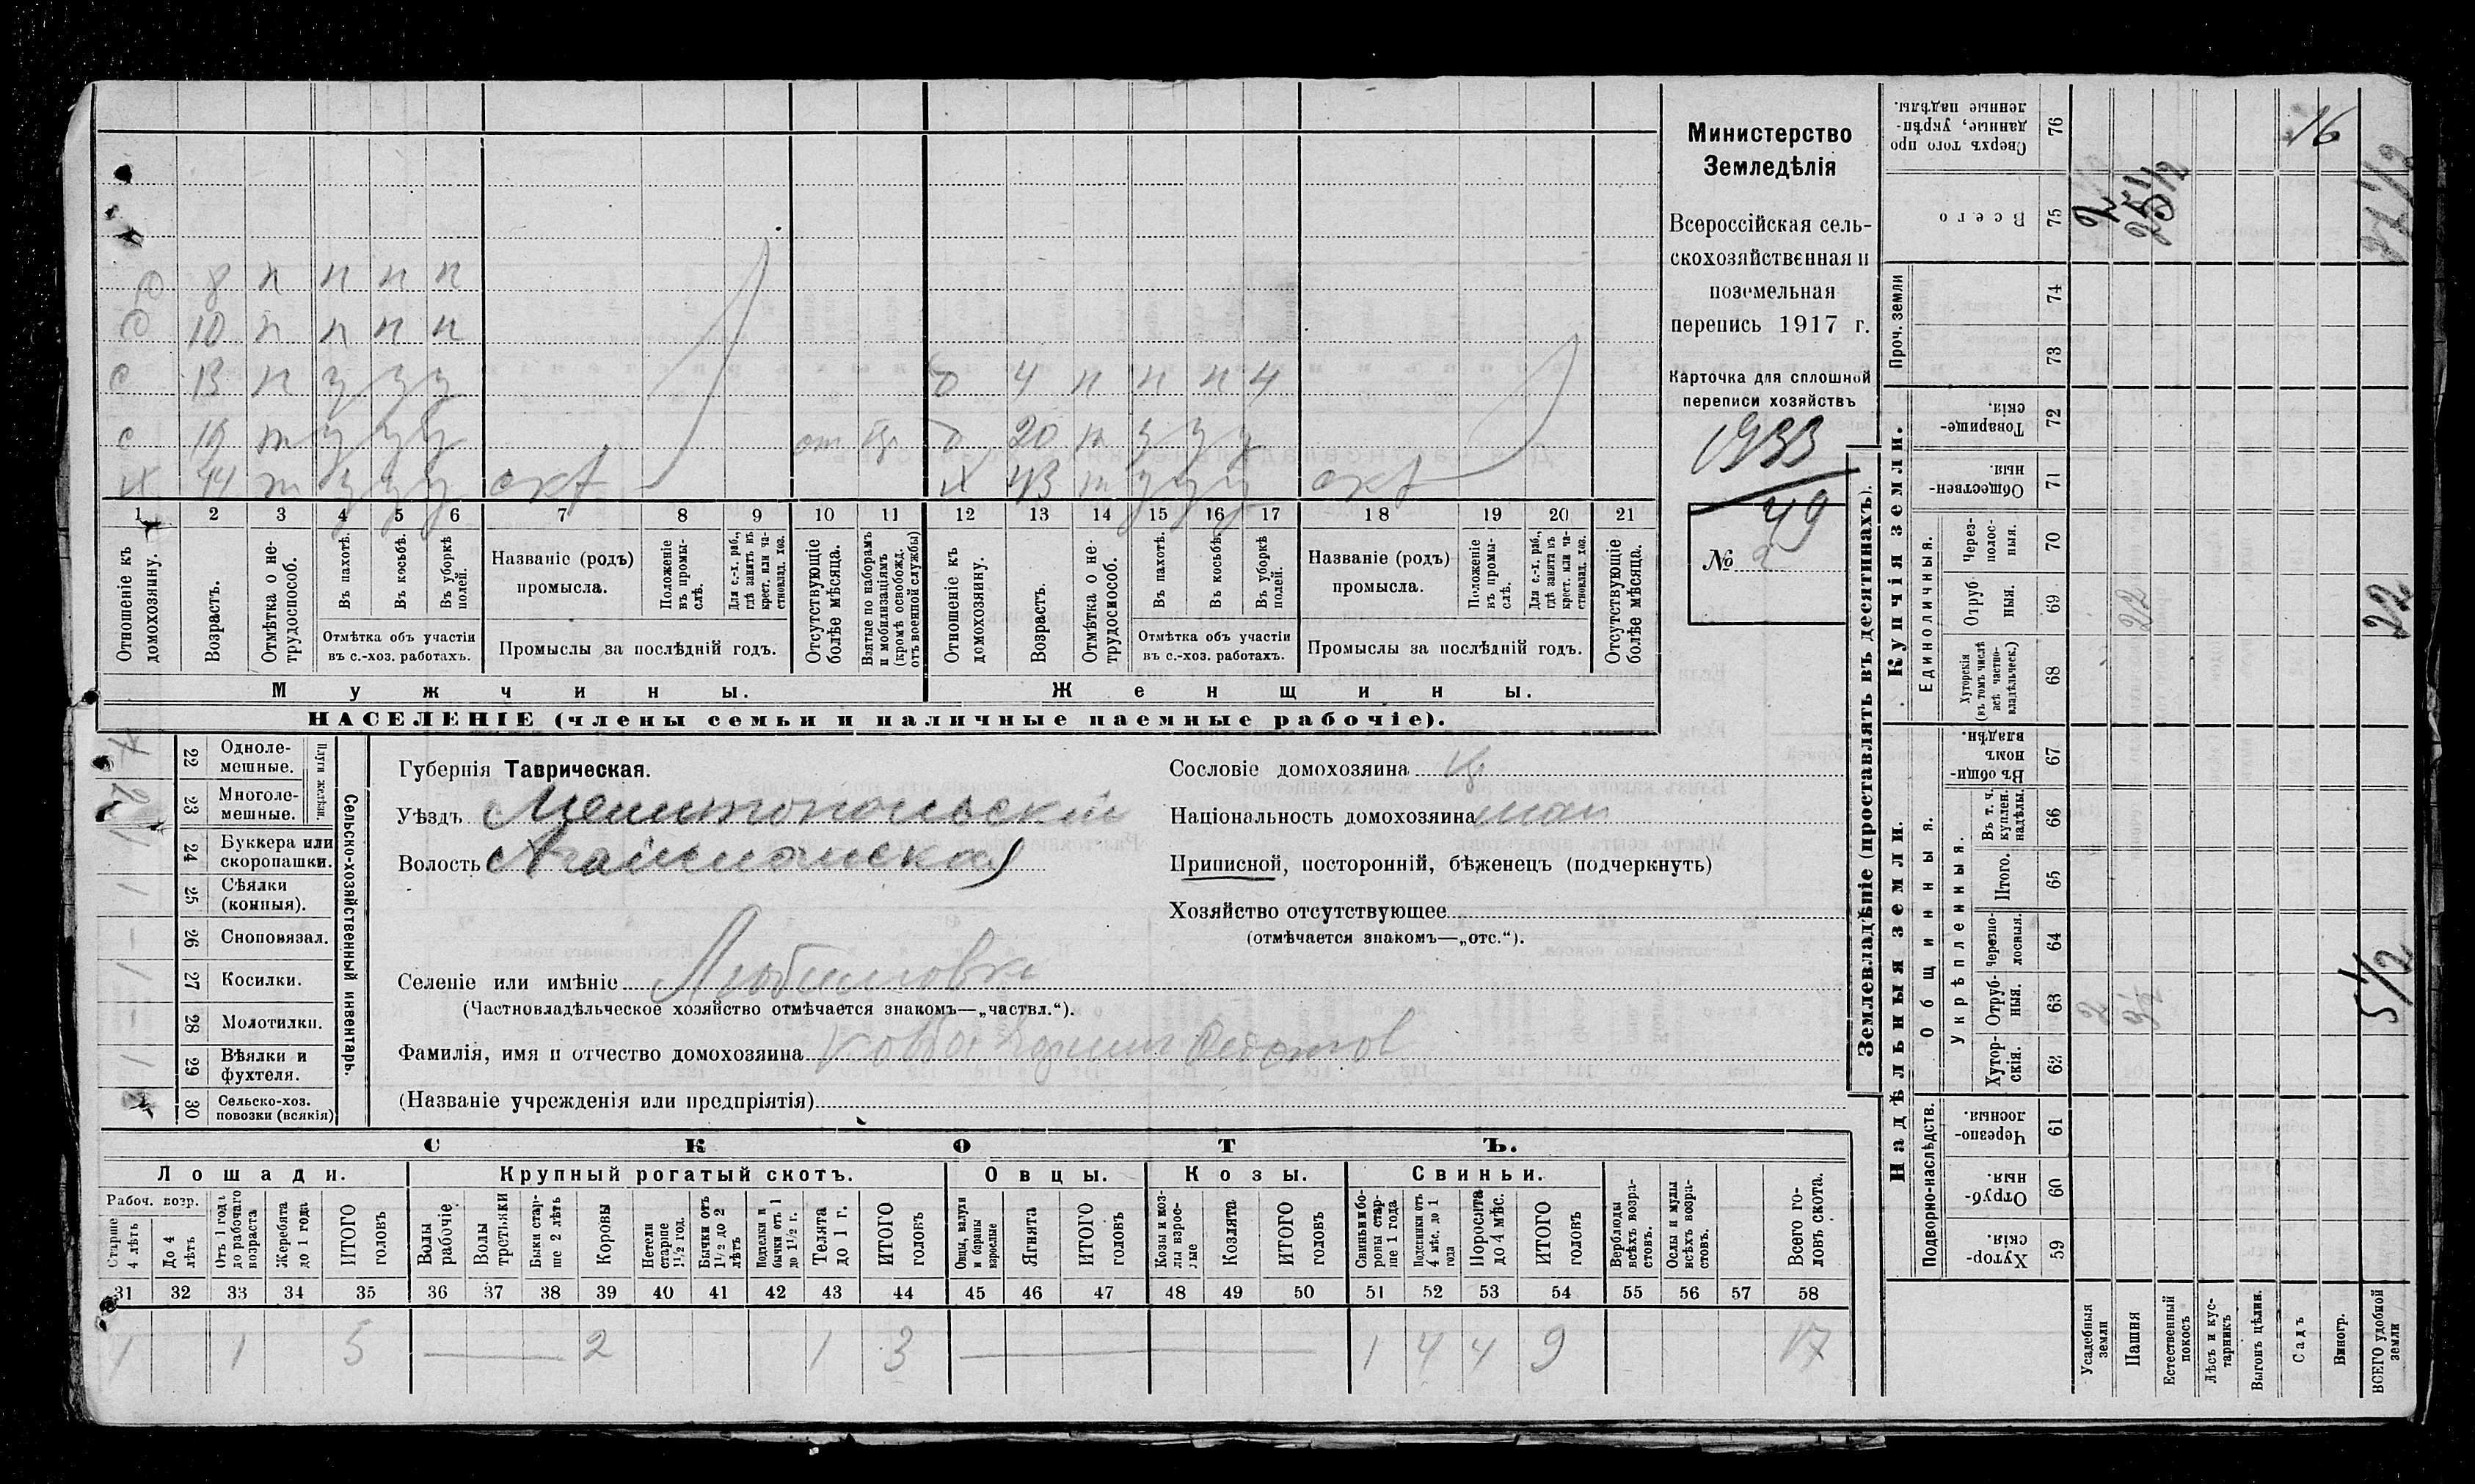 Министерство
Земледѣлія
Всероссійская сель-
скохозяйственная и
поземельная
перепись 1917 г.
Карточка для сплошной
переписи хозяйствъ
1933
49
№ 2
б 8 п п п п
б 10 п п п п
с 13 п у у у б 4 п п п ч
с 19 т у у у б 20 т у у у
х 44 т у у у х 43 т у у у
1 2 3 4 5 6 7 8 9 10 11 12 13 14 15 16 17 18 19 20 21
Отношеніе къ домохозяину.
Возрастъ.
Отмѣтка о не-трудоспособ.
Въ пахотѣ.
Въ косьбѣ.
Въ уборкѣ полей.
Отмѣтка объ участіи
въ с.-хоз. работахъ.
Названіе (родъ)
промысла.
Положеніе въ промы-слѣ.
Для с.-х. раб., гдѣ занятъ въ крест. или ча-стновлад. хоз.
Промыслы за послѣдній годъ.
Отсутствующіе болѣе мѣсяца.
Взятые по наборамъ и мобилизаціямъ (кромѣ освобожд. отъ военной службы)
Отношеніе къ домохозяину.
Возрастъ.
Отмѣтка о не-трудоспособ.
Въ пахотѣ.
Въ косьбѣ.
Въ уборкѣ полей.
Отмѣтка объ участіи
въ с.-хоз. работахъ.
Названіе (родъ)
промысла.
Положеніе въ промы-слѣ.
Для с.-х. раб., гдѣ занятъ въ крест. или ча-стновлад. хоз.
Промыслы за послѣдній годъ.
Отсутствующіе болѣе мѣсяца.
Мужчины. Женщины.
НАСЕЛЕНІЕ (члены семьи и наличные наемные рабочіе).
Сельско-хозяйственный инвентарь.
Плуги желѣзн.
22 Одноле-мешные.
23 Многоле-мешные.
24 Буккера или скоропашки.
25 Сѣялки (конныя).
26 Сноповязал.
27 Косилки.
28 Молотилки.
29 Вѣялки и фухтеля.
30 Сельско-хоз. повозки (всякія)
Губернія Таврическая.
Уѣздъ Мелитопольскій
Волость Агайманская
Селеніе или имѣніе Любимовка
(Частновладѣльческое хозяйство отмѣчается знакомъ—„частвл.“).
Фамилія, имя и отчество домохозяина
(Названіе учрежденія или предпріятія)
Сословіе домохозяина
Національность домохозяина мал
Приписной, посторонній, бѣженецъ (подчеркнуть)
Хозяйство отсутствующее
(отмѣчается знакомъ—„отс.“).
СКОТЪ.
Лошади. Крупный рогатый скотъ. Овцы. Козы. Свиньи.
Рабоч. возр.
Старше 4 лѣтъ
До 4 лѣтъ
Отъ 1 года до рабочаго возраста
Жеребята до 1 года
ИТОГО головъ
Волы рабочіе
Волы третьяки
Быки стар-ше 2 лѣтъ
Коровы
Нетели старше 1½ год.
Бычки отъ 1½ до 2 лѣтъ
Подтелки и бычки отъ 1 до 1½ г.
Телята до 1 г.
ИТОГО головъ
Овцы, валухи и бараны взрослые
Ягнята
ИТОГО головъ
Козы и коз-лы взрос-лые
Козлята
ИТОГО головъ
Свиньи и бо-ровы стар-ше 1 года
Подсвинки отъ 4 мѣс. до 1 года
Поросята до 4 мѣс.
ИТОГО головъ
Верблюды всѣхъ возра-стовъ.
Ослы и мулы всѣхъ возра-стовъ.
Всего го-ловъ скота.
31 32 33 34 35 36 37 38 39 40 41 42 43 44 45 46 47 48 49 50 51 52 53 54 55 56 57 58
1 5 2 1 3 1 4 4 9 17
Землевладѣніе (проставлять въ десятинахъ).
Надѣльныя земли. Купчія земли.
Проч. земли
Подворно-наслѣдств.
Общинныя.
Укрѣпленныя.
Единоличныя.
76 Сверхъ того про данные, укрѣп-ленные надѣлы.
75 Всего
74
73
72 Товарище-скія.
71 Обществен-ныя.
70 Через-полос-ныя.
69 Отруб ныя.
68 Хуторскія (въ томъ числѣ всѣ частно-владѣльческ.)
67 Въ общи-номъ владѣн.
66 Въ т. ч. куплен. надѣлы.
65 Итого.
64 Черезпо-лосныя.
63 Отруб-ныя.
62 Хутор-скія.
61 Черезпо-лосныя.
60 Отруб-ныя.
59 Хутор-скія.
Усадебныя земли
Пашня
Естественный покосъ
Лѣсъ и кус-тарникъ
Выгонъ цѣлин.
Садъ
Виногр.
ВСЕГО удобной земли
2
25½
16
27½
22
22
2
3½
5½